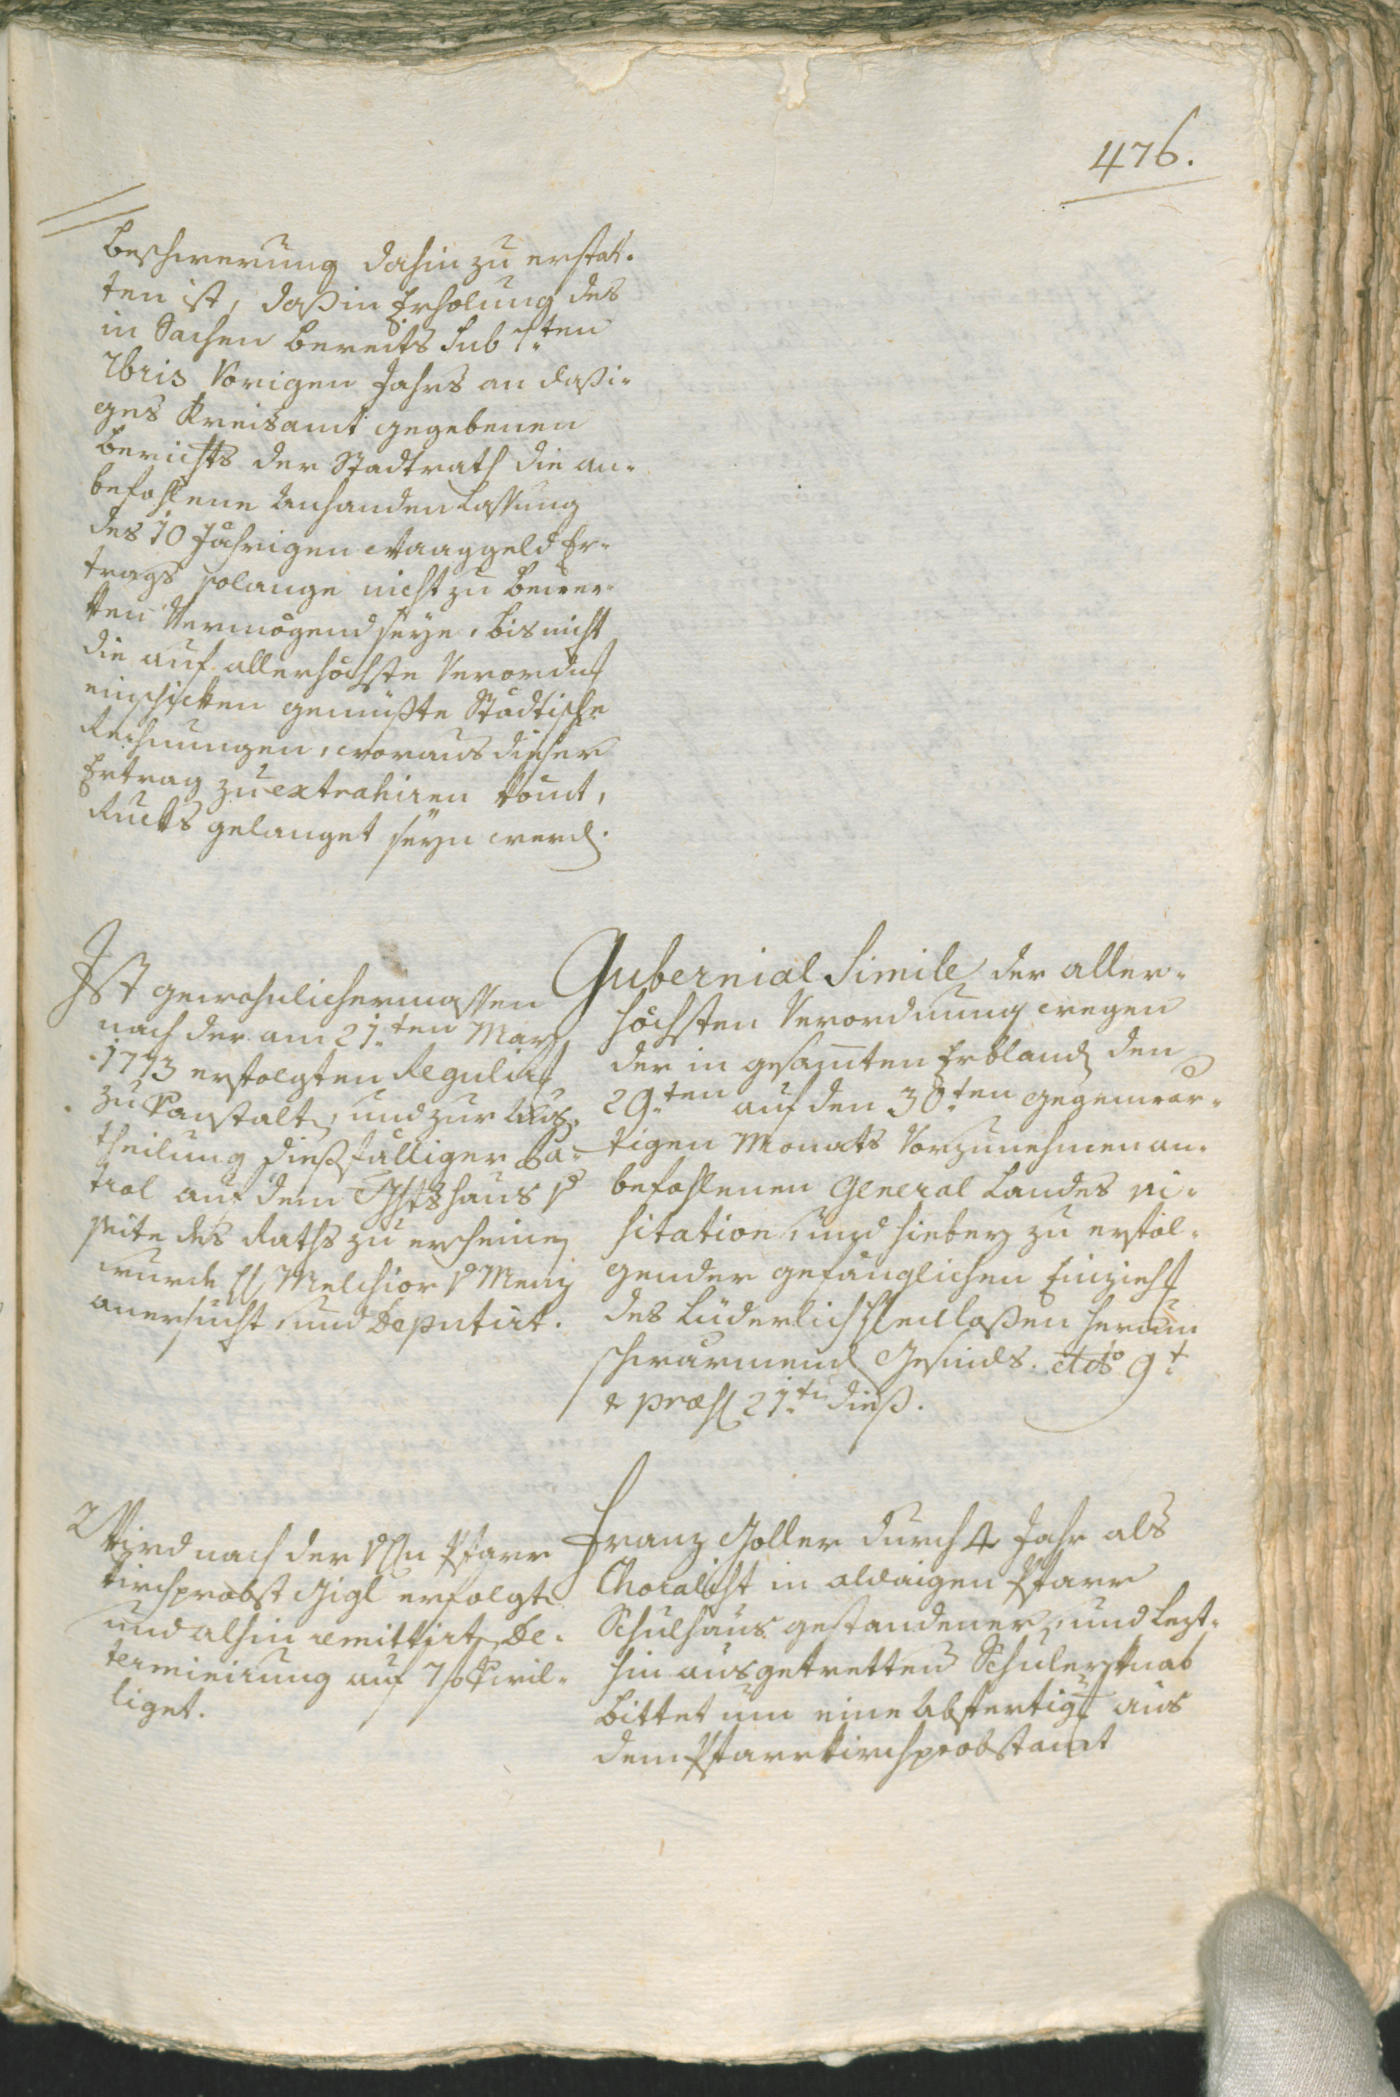 476.
beschwerung dahin zu erstat-
ten ist, daß in Erholung des
in Sachen bereits sub 7ten
7bris vorigen Jahrs an dasi-
ges Kreisamt gegebenen
berichts der Stadtrath die an-
befohlene Anhandenlassung
des 10 Jährigen Waaggeld Er-
trags solange nicht zu bewer-
ken vermögend seye, bis nicht
die auf allerhöchste Verordng
einschicken gemüßte Städtische
Rechnungen, woraus dieser
Ertrag zu extrahiren kömt,
Ruckgelanget seyn werd.
Ist gewohnlichermassen
nach der am 21ten
1773 erfolgten
zu und zur Aus-
theilung dießfälliger Pa-
trol auf dem haus
seite des Raths zu erscheinen
wurde H Melchior v Menz
anersucht, und Deputirt.
Gubernial Simile der aller-
höchsten Verordnung wegen
der in gesamten Erbland den
29ten auf den 30ten gegenwär-
tigen Monats vorzunehmen an-
befohlenen General Landes vi-
sitation, und hieby zu erfol-
gender gefänglichen Einziehg
des Lüderlich herum
schwärmend Gesinds. ddto 9t
& præs 21ten dieß.
Wird nach der Pfarr
kirchprobst Gigl erfolgt
und alhin remittirt De-
terminirung auf 7 f bewil-
liget.
Franz Goller durch 4 Jahr als
Choralist in aldaigen Pfarr
Schulhaus gestandener, und lezt-
hin ausgetretten Schulersknab
bittet um eine Abfertigg aus
dem Pfarrkirchprobstamt